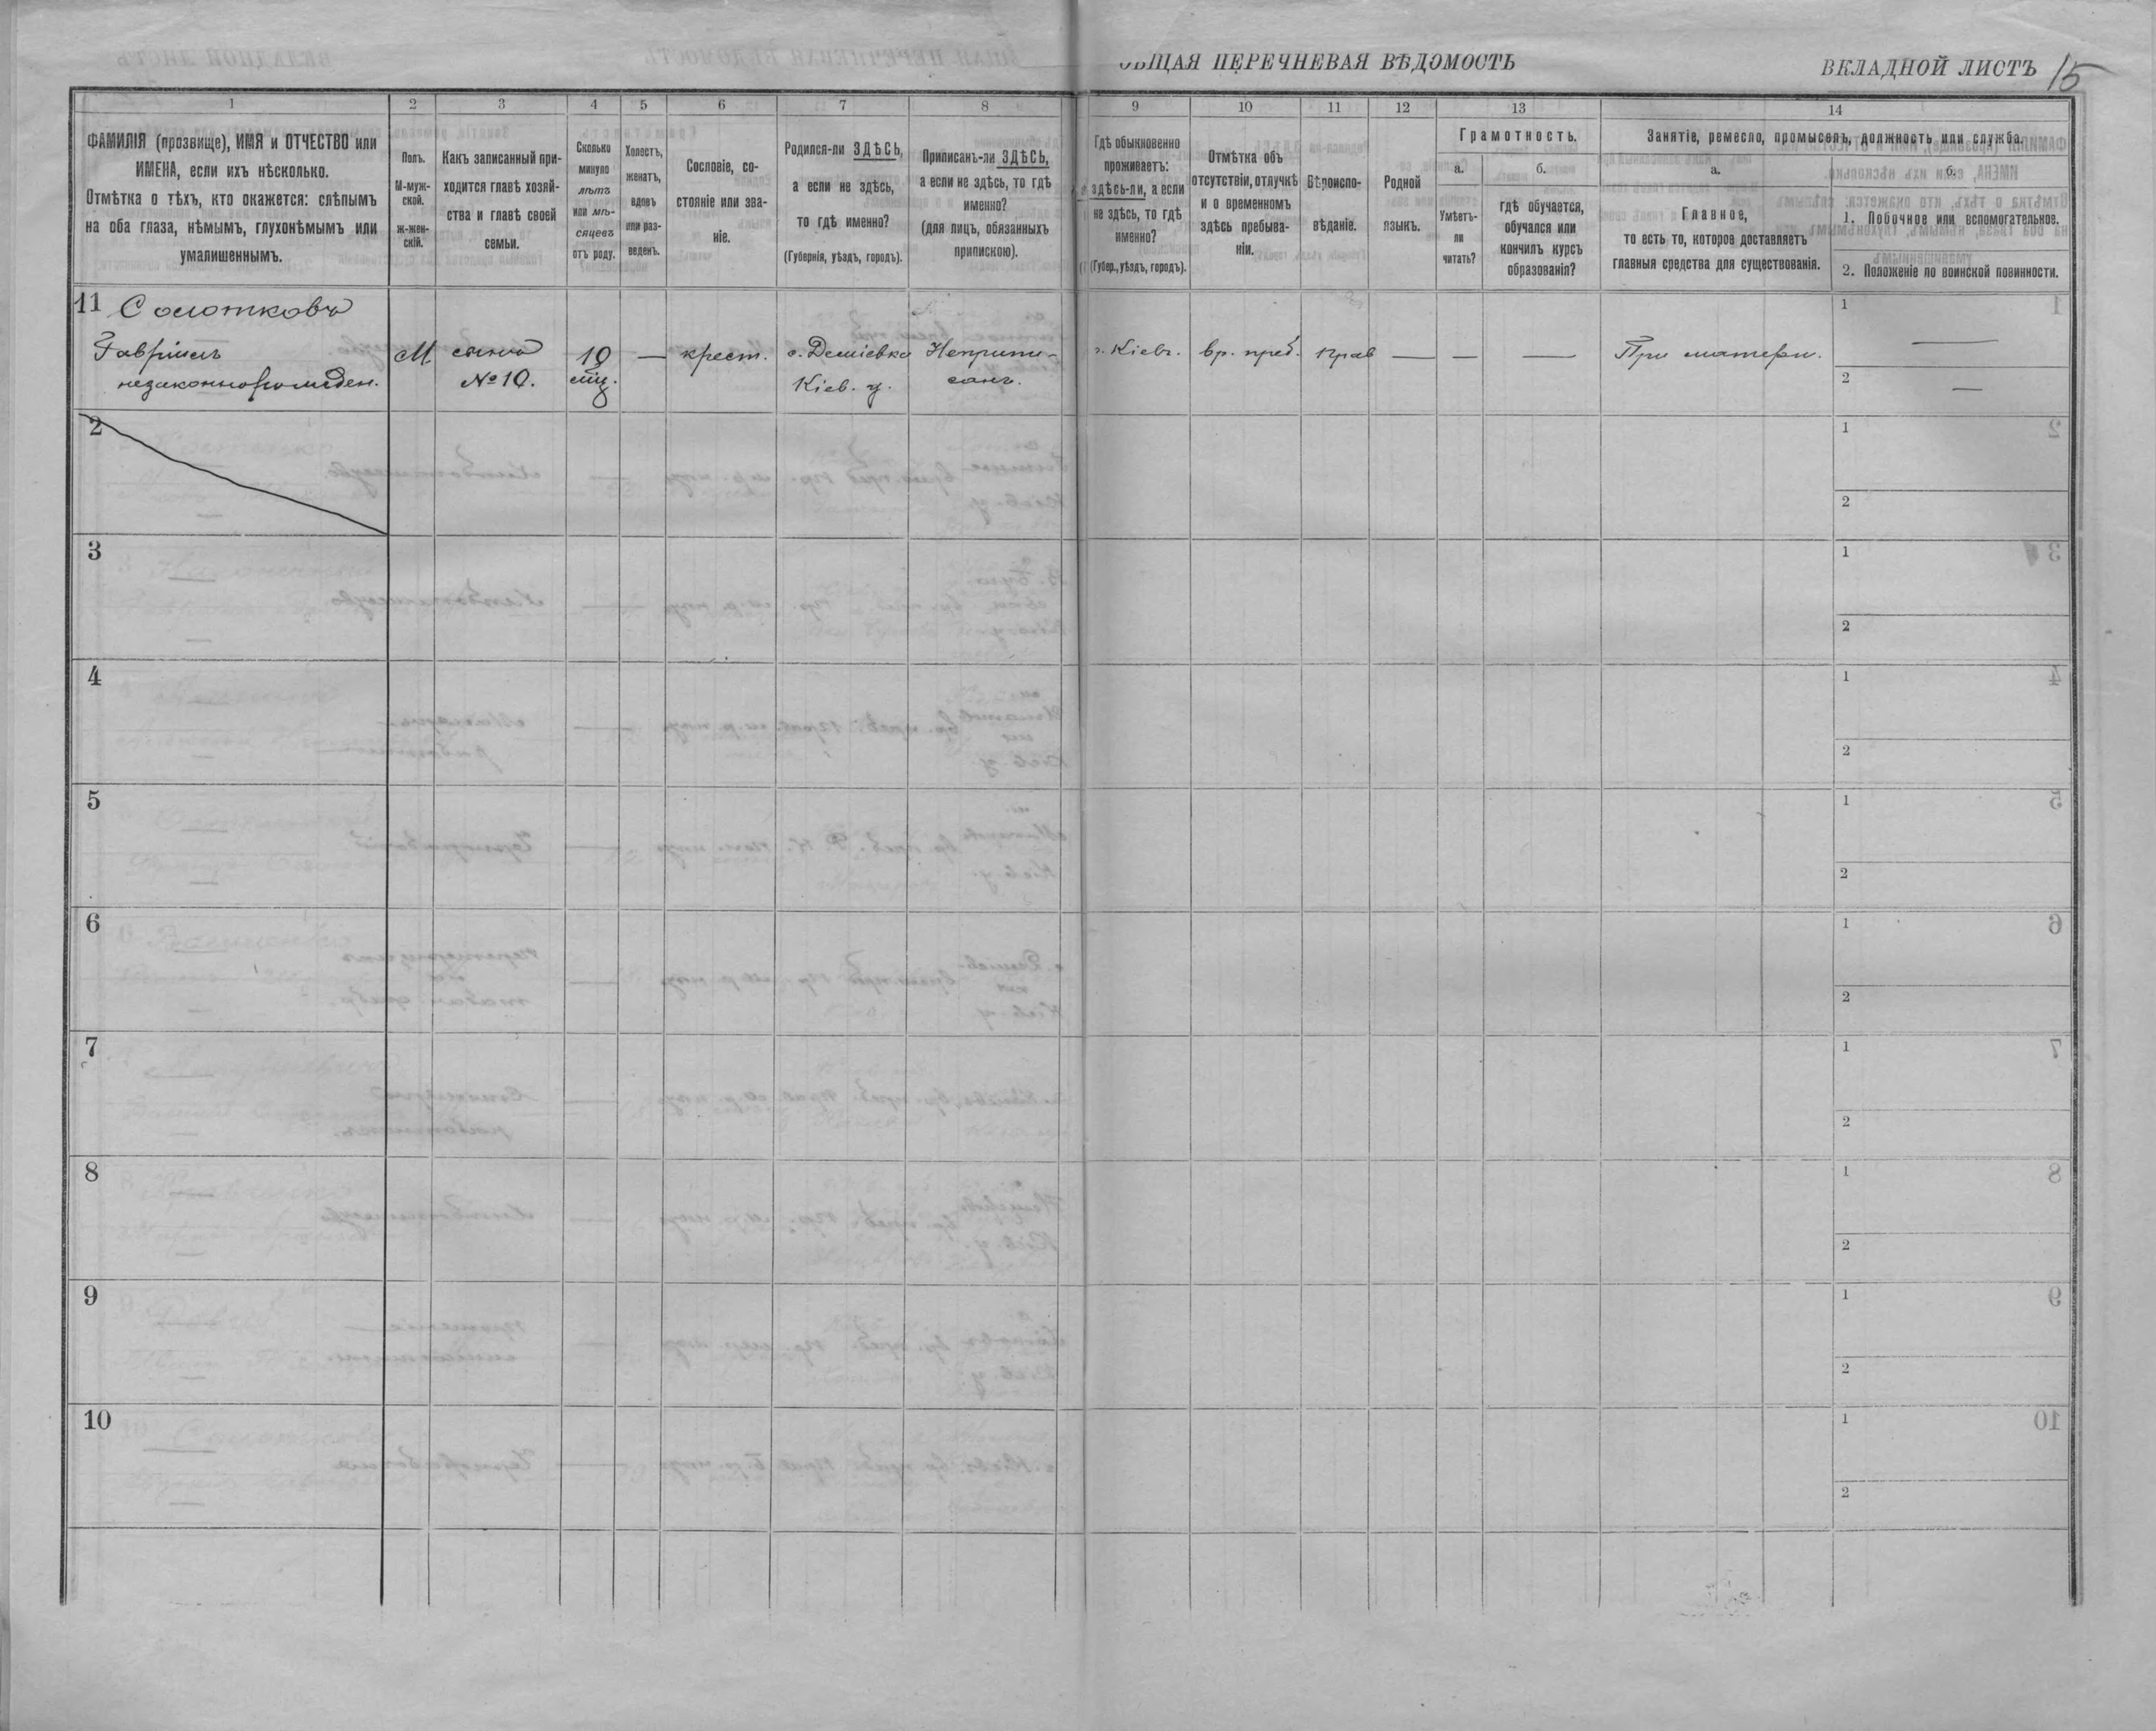 ОБЩАЯ ПЕРЕЧНЕВАЯ ВѢДОМОСТЬ
ВКЛАДНОЙ ЛИСТЪ 15
1 2 3 4 5 6 7 8 9 10 11 12 13 14
ФАМИЛІЯ (прозвище), ИМЯ и ОТЧЕСТВО или
ИМЕНА, если ихъ нѣсколько.
Отмѣтка о тѣхъ, кто окажется: слѣпымъ
на оба глаза, нѣмымъ, глухонѣмымъ или
умалишеннымъ.
Полъ.
М-муж-
ской.
ж-жен-
скій.
Какъ записанный при-
ходится главѣ хозяй-
ства и главѣ своей
семьи.
Сколько
минуло
лѣтъ
или мѣ-
сяцевъ
отъ роду.
Холостъ,
женатъ,
вдовъ
или раз-
веденъ.
Сословіе, со-
стояніе или зва-
ніе.
Родился-ли ЗДѢСЬ,
а если не здѣсь,
то гдѣ именно?
(Губернія, уѣздъ, городъ).
Приписанъ-ли ЗДѢСЬ,
а если не здѣсь, то гдѣ
именно?
(для лицъ, обязанныхъ
припискою).
Гдѣ обыкновенно
проживаетъ:
здѣсь-ли, а если
не здѣсь, то гдѣ
именно?
(Губер., уѣздъ, городъ).
Отмѣтка объ
отсутствіи, отлучкѣ
и о временномъ
здѣсь пребыва-
ніи.
Вѣроиспо-
вѣданіе.
Родной
языкъ.
Грамотность.
а.
Умѣетъ-
ли
читать?
б.
гдѣ обучается,
обучался или
кончилъ курсъ
образованія?
Занятіе, ремесло, промыселъ, должность или служба.
а.
Главное,
то есть то, которое доставляетъ
главныя средства для существованія.
б.
1. Побочное или вспомогательное.
2. Положеніе по воинской повинности.
11 Солотковъ
Гавріилъ
незаконнорожден.
М
сынъ
№ 10.
10
мц.
—
крест.
с. Деміевка
Кіев. у.
Неприпи-
санъ.
г. Кіевъ.
вр. преб.
Прав
—
—
—
При матери.
1 —
2 —
2
1
2
3
1
2
4
1
2
5
1
2
6
1
2
7
1
2
8
1
2
9
1
2
10
1
2